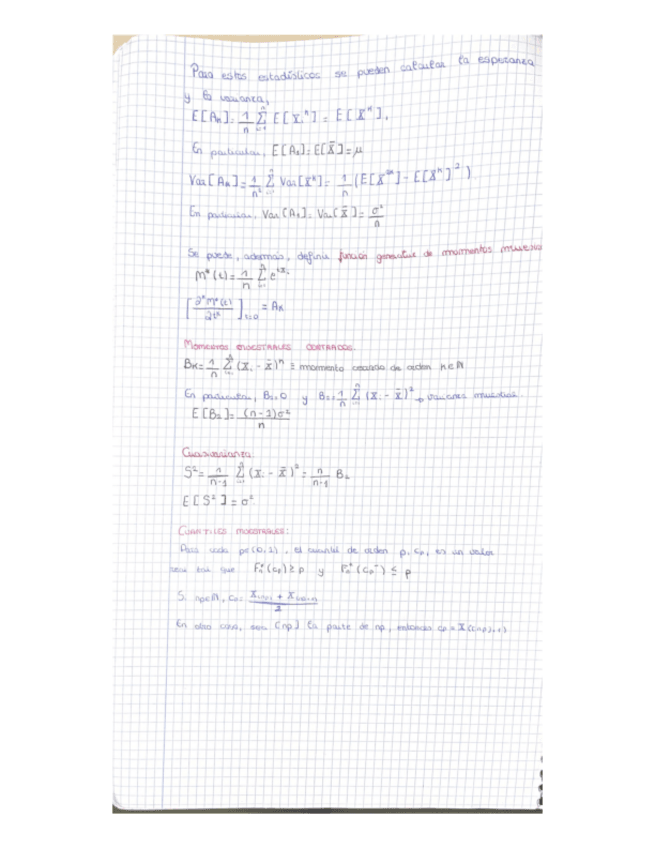 Para estos estadísticos se pueden calcular la esperanza
y la varianza,
E[Aₖ] = 1/n Σⁿᵢ₌₁ E[Xᵢᵏ] = E[Xᵏ],
En particular, E[A₁] = E[X̄] = μ
Var[Aₖ] = 1/n² Σⁿᵢ₌₁ Var[Xᵏ] = 1/n (E[X²ᵏ] - E[Xᵏ]²)
En particular, Var[A₁] = Var[X̄] = σ²/n
Se puede, además, definir función generatriz de momentos
m*(t) = 1/n Σⁿᵢ₌₁ e^(tXᵢ)
[∂ᵏm*(t)/∂tᵏ]ₜ₌₀ = Aₖ
MOMENTOS MUESTRALES CENTRADOS.
Bₖ = 1/n Σⁿᵢ₌₁ (Xᵢ - X̄)ᵏ ≡ momento centrado de orden k∈ℕ
En particular, B₁=0 y B₂ = 1/n Σⁿᵢ₌₁ (Xᵢ - X̄)² → varianza muestral.
E[B₂] = (n-1)σ²/n
Cuasivarianza.
S² = 1/(n-1) Σⁿᵢ₌₁ (Xᵢ - X̄)² = n/(n-1) B₂
E[S²] = σ²
CUANTILES MUESTRALES:
Para cada p∈(0,1), el cuantil de orden p, cₚ, es un valor
real tal que Fₙ*(cₚ) ≥ p y Fₙ*(cₚ⁻) ≤ p
Si np∈ℕ, cₚ = (X₍ₙₚ₎ + X₍ₙₚ₊₁₎)/2
En otro caso, sea [np] la parte de np, entonces cₚ = X₍[ₙₚ]₊₁₎